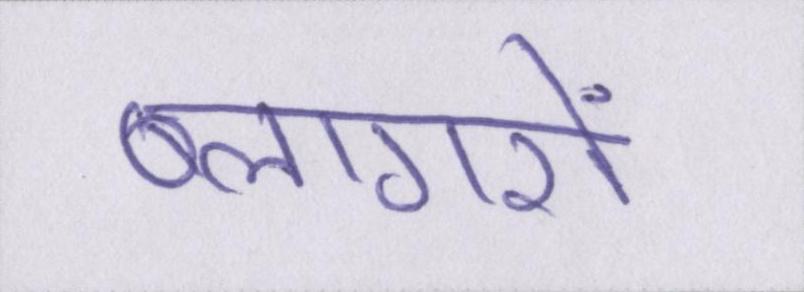 ब्लागरों